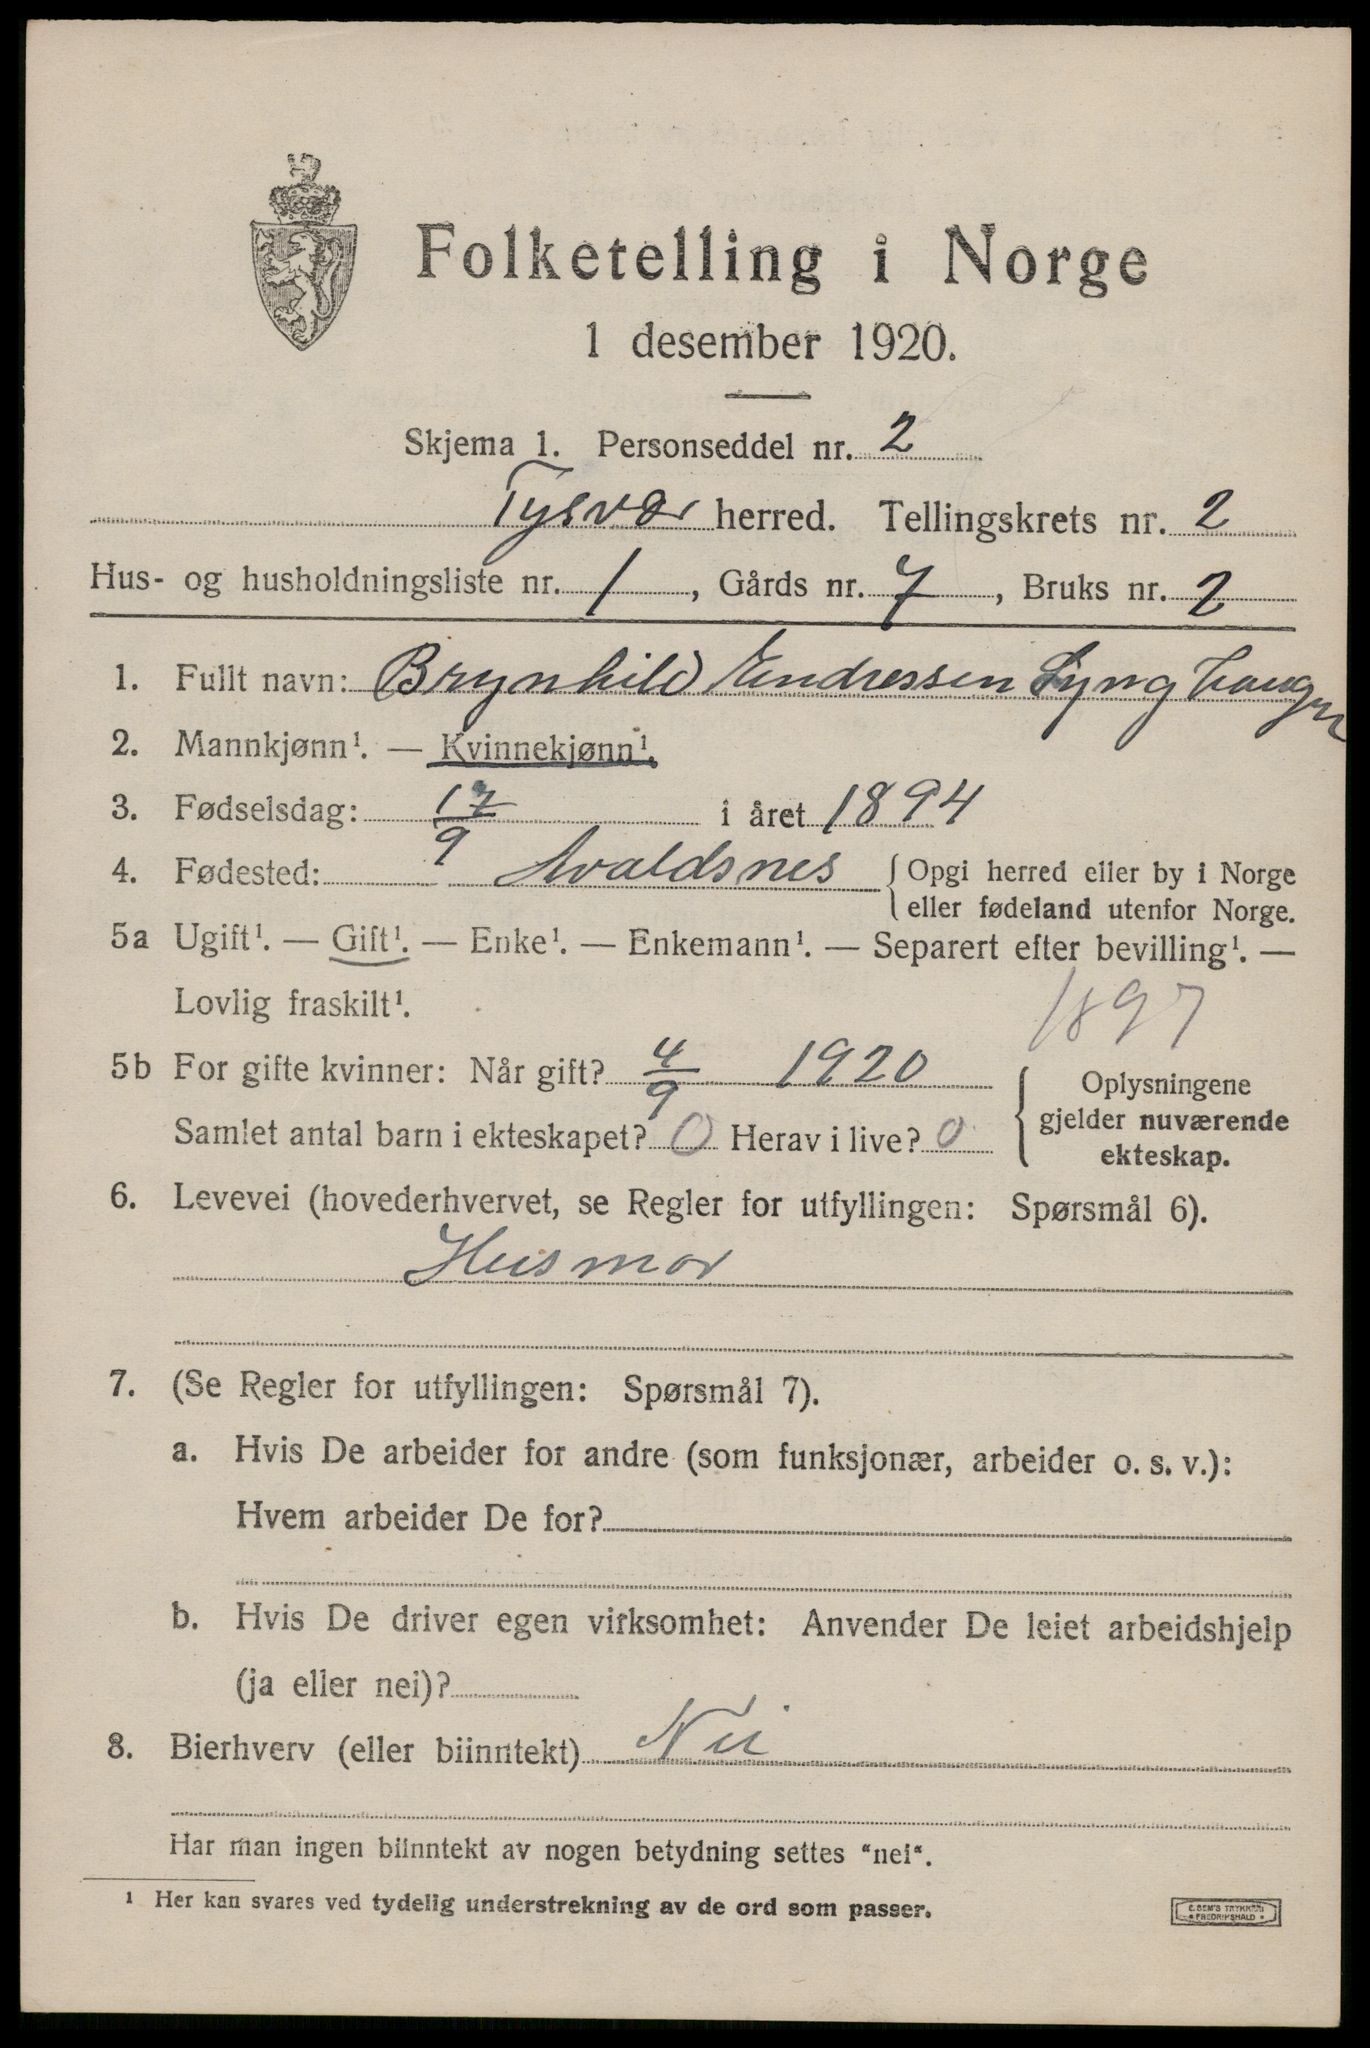 Folketelling i Norge
1 desember 1920.
Skjema 1. Personseddel nr. 2
Tysvær herred. Tellingskrets nr. 2
Hus- og husholdningsliste nr. 1, Gårds nr. 7, Bruks nr. 2
1. Fullt navn: Brynhild Endressen Lyng
2. Mannkjønn¹. — Kvinnekjønn¹.
3. Fødselsdag: 17/9 i året 1894
4. Fødested: Avaldsnes { Opgi herred eller by i Norge
eller fødeland utenfor Norge.
5a Ugift¹. — Gift¹. — Enke¹. — Enkemann¹. — Separert efter bevilling¹. —
Lovlig fraskilt¹. 1897
5b For gifte kvinner: Når gift? 4/9 1920
Samlet antal barn i ekteskapet? 0 Herav i live? 0
{ Oplysningene
gjelder nuværende
ekteskap.
6. Levevei (hovederhvervet, se Regler for utfyllingen: Spørsmål 6).
Husmor
7. (Se Regler for utfyllingen: Spørsmål 7).
a. Hvis De arbeider for andre (som funksjonær, arbeider o. s. v.):
Hvem arbeider De for?
b. Hvis De driver egen virksomhet: Anvender De leiet arbeidshjelp
(ja eller nei)?
8. Bierhverv (eller biinntekt) Nei
Har man ingen biinntekt av nogen betydning settes "nei".
¹ Her kan svares ved tydelig understrekning av de ord som passer.
E. SEM'S TRYKKERI
• FREDRIKSHALD •